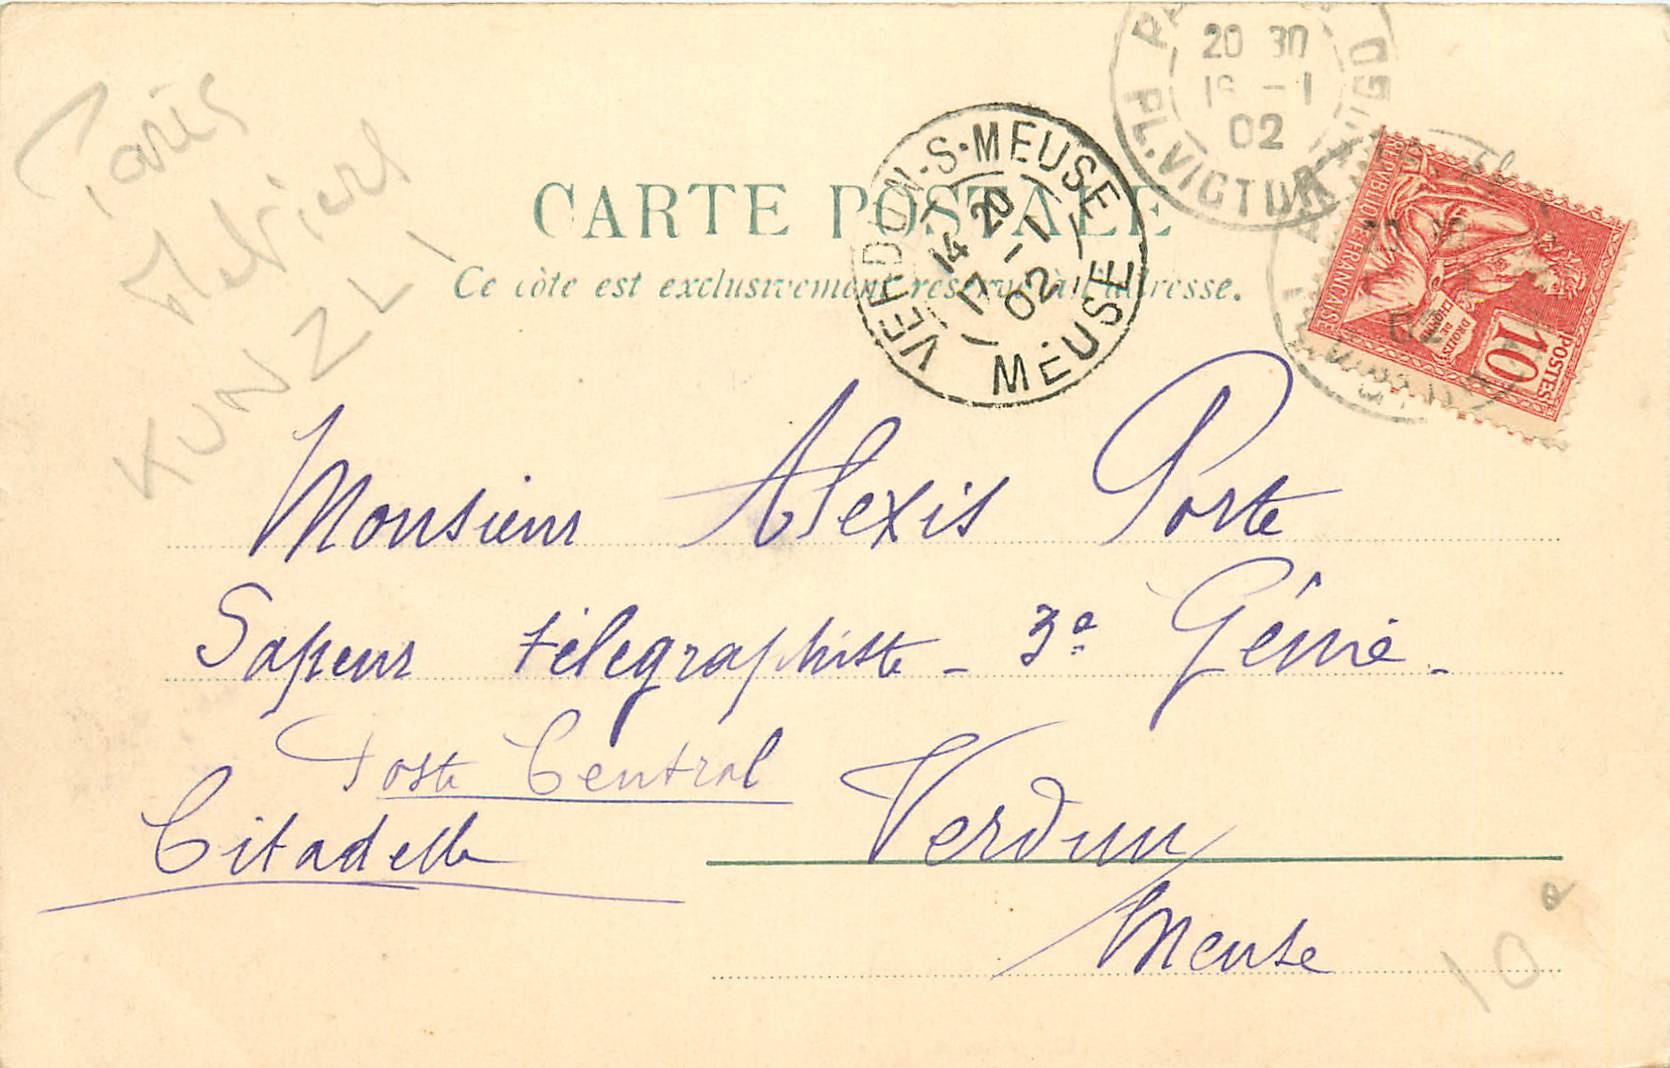 Paris
Métiers
KUNZLI
CARTE POSTALE
Ce côté est exclusivement réservé à l'adresse.
VERDUN-S-MEUSE
14 20
17 -1
02
MEUSE
PL. VICTOR HUGO
20 30
16 -1
02
REPUBLIQUE FRANCAISE
DROITS
DE
L'HOMME
10
POSTES
Monsieur Alexis Porte
Sapeur télégraphiste - 3e Génie -
Poste Central
Citadelle
Verdun
Meuse
10